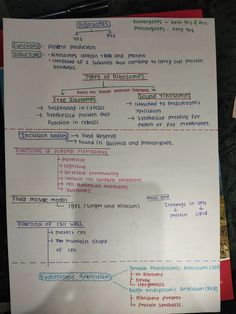 Ribosomes
Eukaryotes - both 70s & 80s
Prokaryotes - only 70s
70s 80s
Functions: Protein production
Structure - Ribosomes contain RNA and protein
• Composed of 2 subunits that combine to carry out protein
synthesis.
Types of Ribosomes
Free Ribosomes
Bound Ribosomes
→ Suspended in cytosol
→ Attached to Endoplasmic
reticulum
→ Synthesise protein that
function in cytosol
→ Synthesise proteins for
or for membranes
Inclusion bodies → Food Reserve
→ Found in Bacteria and prokaryotes.
Functions of plasma membrane
→ Protective
→ Digestive
→ Selective permeability
→ cell surface
→ cell
→ Junctions
Fluid mosaic model
→ 1972 (Singer and Nicolson)
Iceberg in sea
Protein Lipid
Function of cell wall
→ Protect cell
→ maintain shape
of cell
Endoplasmic Reticulum
Smooth Endoplasmic Reticulum (SER)
→ No Ribosome
→ Lipogenesis
Rough Endoplasmic Reticulum (RER)
→ Ribosome present
→ Protein synthesis.